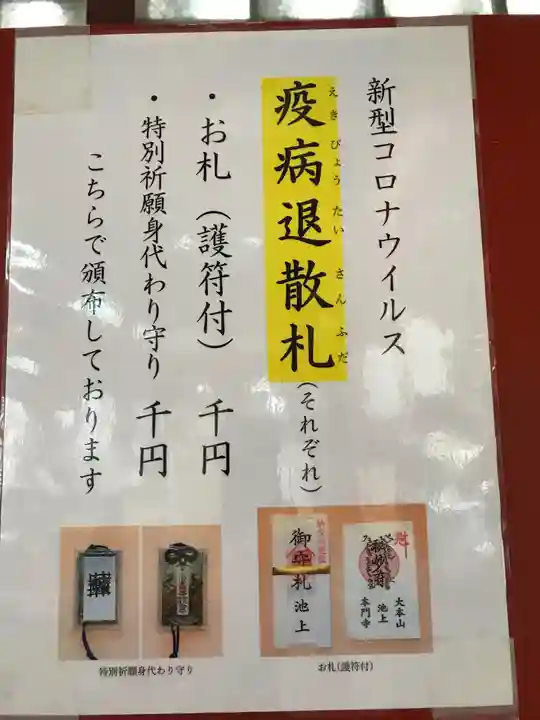 新型コロナウイルス
えきびょうたいさんふだ
疫病退散札(それぞれ)
・お札(護符付) 千円
・特別祈願身代わり守り 千円
こちらで頒布しております
御札
池上
大本山
池上
本門寺
お札(護符付)
特別祈願身代わり守り